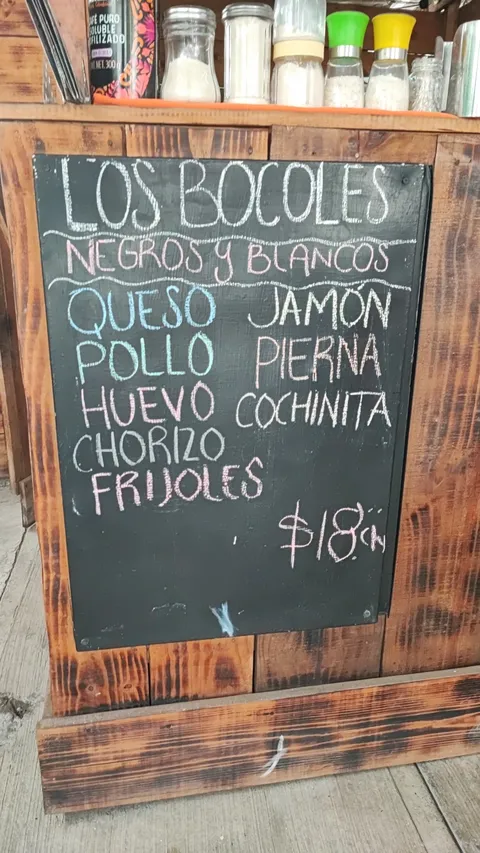 CAFÉ PURO
SOLUBLE
NET.300g
LOS BOCOLES
NEGROS y BLANCOS
QUESO JAMÓN
POLLO PIERNA
HUEVO COCHINITA
CHORIZO
FRIJOLES
$18